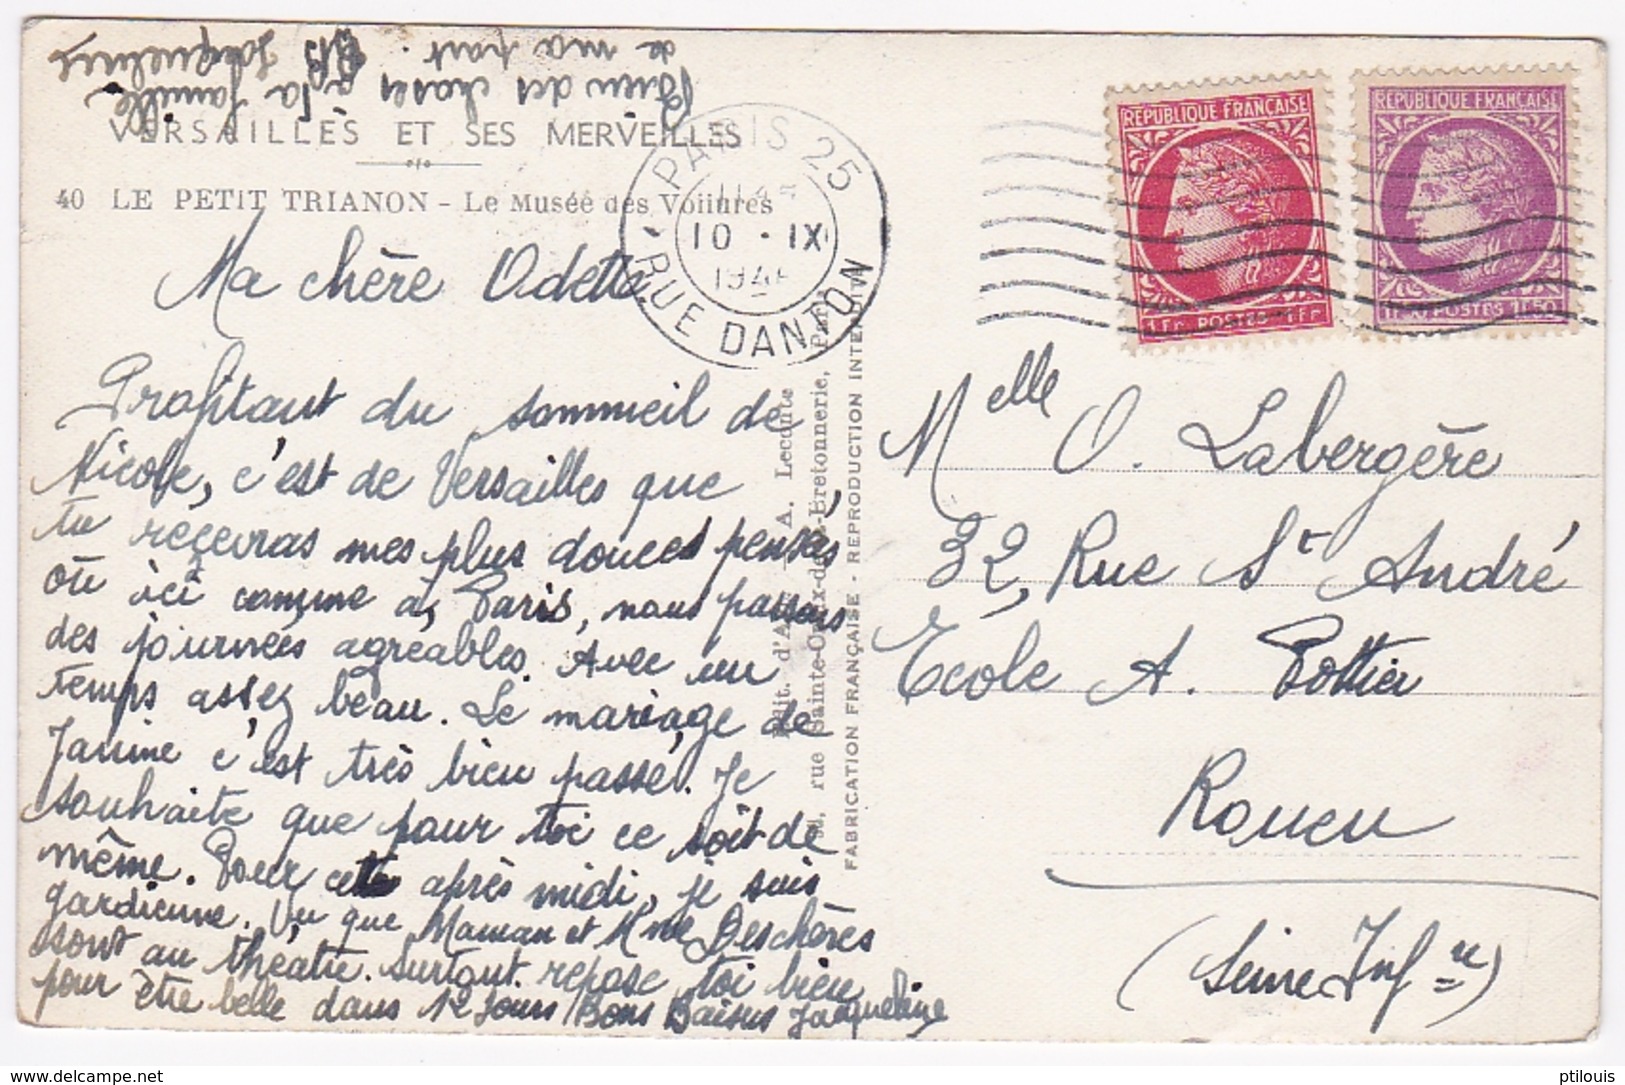 Bien des choses à la famille
de ma part. Jacqueline
VERSAILLES ET SES MERVEILLES
40 LE PETIT TRIANON - Le Musée des Voitures
PARIS 25
10 - IX
RUE DANTON
REPUBLIQUE FRANÇAISE
1Fr POSTES 1Fr
REPUBLIQUE FRANÇAISE
1F50 POSTES 1F50
Ma chère Odette,
Profitant du sommeil de
Nicole, c'est de Versailles que
tu reçevras mes plus douces pensées
où ici comme à Paris, nous passons
des journées agréables. Avec un
temps assez beau. Le mariage de
Janine c'est très bien passé. Je
souhaite que pour toi ce soit de
même. Pour cette après midi, je suis
gardienne. Vu que Maman et Mme Deschères
sont au théatre. Surtout repose toi bien
pour être belle dans 12 jours Bons Baisers Jacqueline
Edit. d'Art A. Leconte
rue Sainte-Croix-de-la-Bretonnerie, Paris
FABRICATION FRANÇAISE - REPRODUCTION INTERDITE
Melle O. Labergère
32, Rue St André
Ecole A. Pottier
Rouen
(Seine Infre)
www.delcampe.net
ptilouis